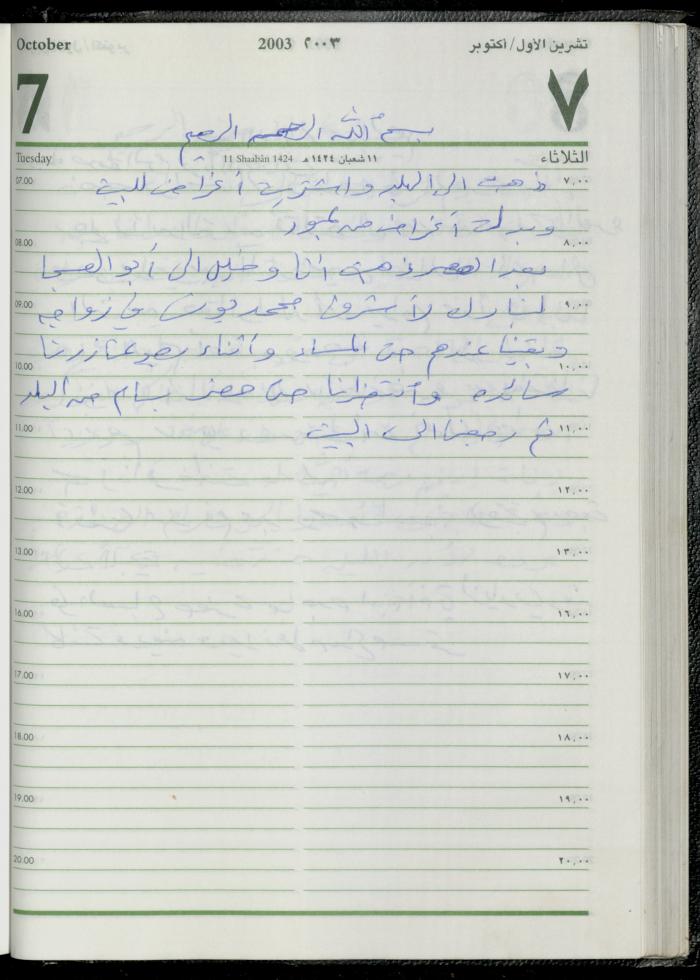 October 2003 ٢٠٠٣ تشرين الأول/أكتوبر
7 ٧
بسم الله الرحمن الرحيم
Tuesday 11 Shaabân 1424 ١١ شعبان ١٤٢٤ هـ الثلاثاء
07.00 ذهبت إلى البلد واشتريت أغراض للبيت ٧,٠٠
وبدلت أغراض من
08.00 ٨,٠٠
بعد العصر ذهبت أنا وخليل الى أبو العسجا
09.00 لنبارك لأشرف محمد في زواجه ٩,٠٠
وبقينا عندهم حتى المساء وأثناء زرنا
10.00 ١٠,٠٠
سائده وأنتظرنا حتى حضر بسام من البلد
11.00 ثم رجعنا الى البيت ١١,٠٠
12.00 ١٢,٠٠
13.00 ١٣,٠٠
16.00 ١٦,٠٠
17.00 ١٧,٠٠
18.00 ١٨,٠٠
19.00 ١٩,٠٠
20.00 ٢٠,٠٠